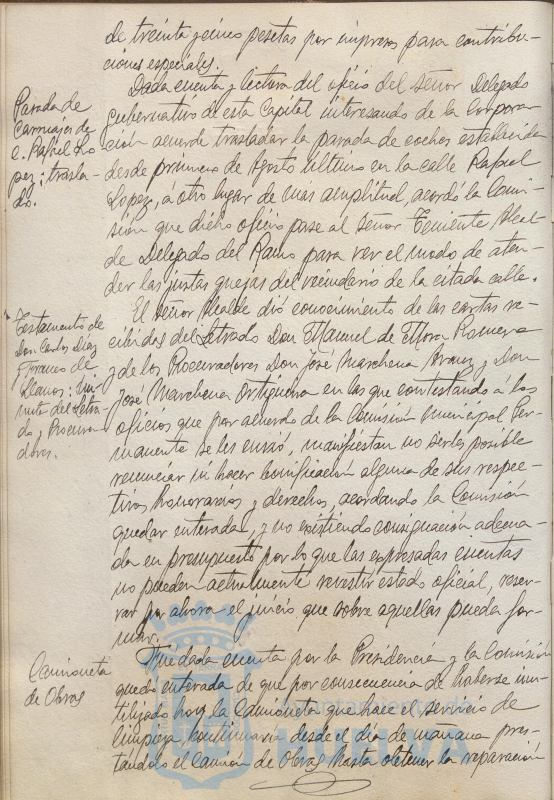 de treinta y cinco pesetas por impresos para contribu-
ciones especiales.
Parada de
Carruajes de
c. Rafael Ló-
pez: trasla-
do.
Dada cuenta y lectura del oficio del señor Delegado
gubernativo de esta Capital interesando de la Corpora-
ción acuerde trasladar la parada de coches establecida
desde primero de Agosto último en la calle Rafael
López, á otro lugar de más amplitud, acordó la Comi-
sión que dicho oficio pase al señor Teniente Alcal-
de Delegado del Ramo para ver el modo de aten-
der las justas quejas del vecindario de la citada calle.
Testamento de
Don Carlos Díaz
y Franco de
Llanos: Mi-
nuta del Letra-
do y Procura
dores.
El señor Alcalde dió conocimiento de las cartas re-
cibidas del Letrado Don Manuel de Mora Romero
y de los Procuradores Don José Marchena y Don
José Marchena Ortiguera en las que contestando a los
oficios que por acuerdo de la Comisión Municipal Per-
manente se les envió, manifiestan no serles posible
renunciar ni hacer bonificación alguna de sus respec-
tivos honorarios y derechos, acordando la Comisión
quedar enterada, y no existiendo consignación adecua-
da en presupuesto por lo que las expresadas cuentas
no pueden actualmente revestir estado oficial, reser-
var por ahora el juicio que sobre aquellas pueda for-
mar.
Camioneta
de Obras
Fué dada cuenta por la Presidencia y la Comisión
quedó enterada de que por consecuencia de haberse inu-
tilizado hoy la Camioneta que hace el servicio de
limpieza, continuaría desde el día de mañana pres-
tándolo el camión de Obras hasta obtener la reparación
HUELVA